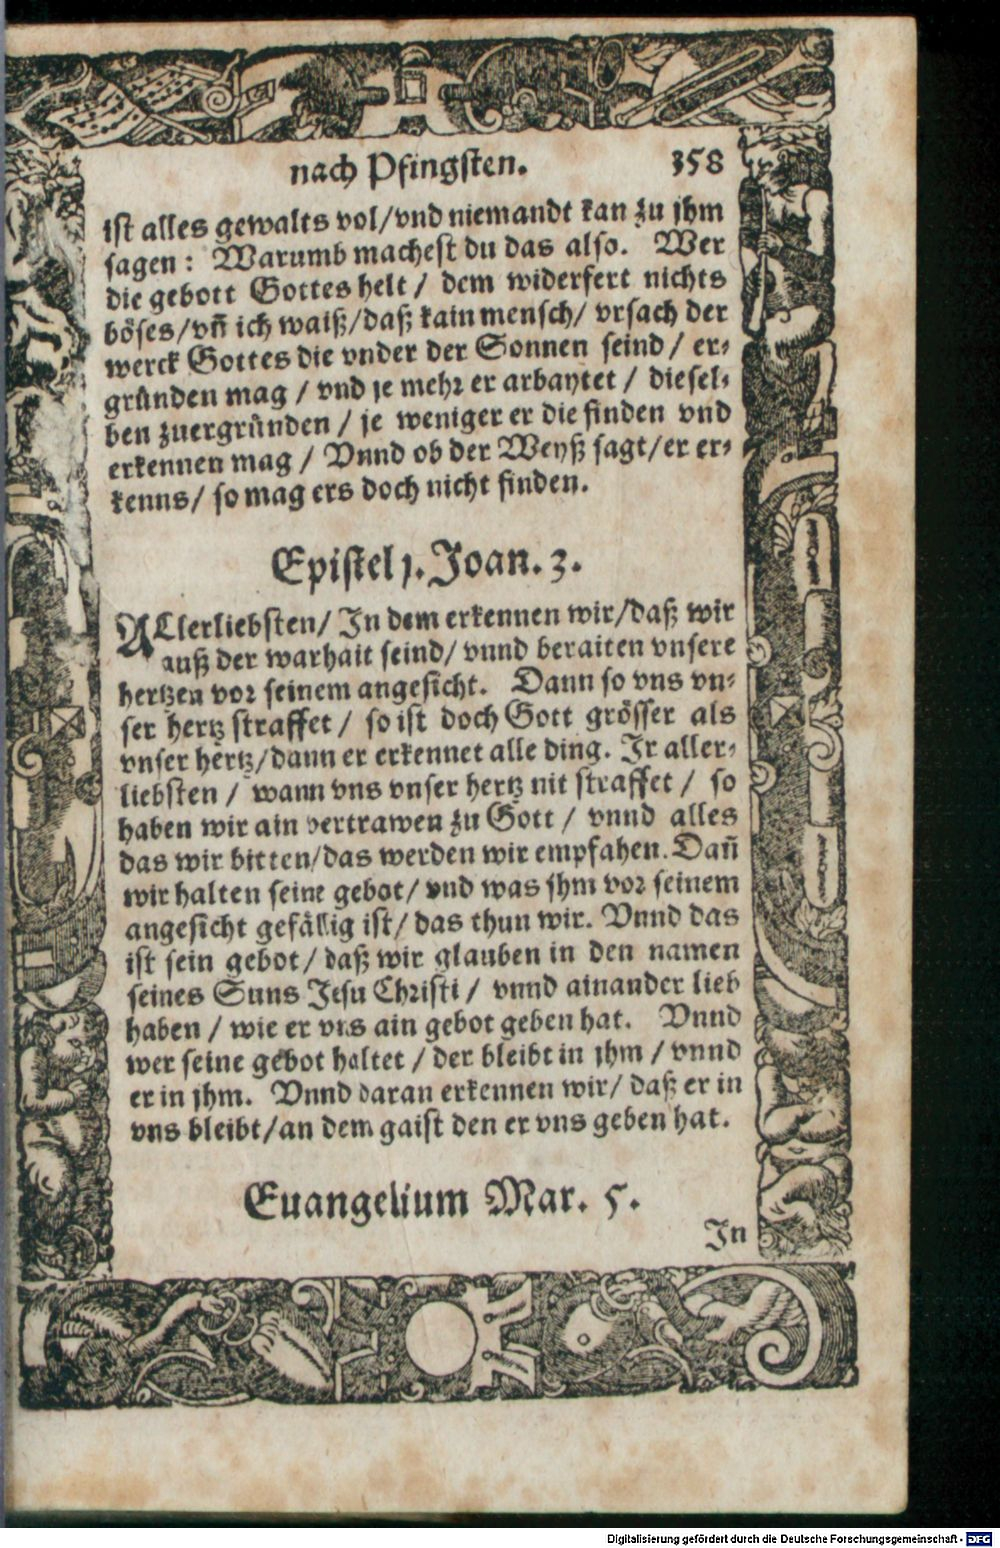 nach Pfingsten. 358
ist alles gewalts vol/vnd niemandt kan zu jhm
sagen: Warumb machest du das also. Wer
die gebott Gottes helt/ dem widerfert nichts
böses/vñ ich waiß/daß kain mensch/ vrsach der
werck Gottes die vnder der Sonnen seind/ er-
gründen mag/ vnd je mehr er arbaytet/ diesel-
ben zuergründen/ je weniger er die finden vnd
erkennen mag/ Vnnd ob der Weyß sagt/er er-
kenns/ so mag ers doch nicht finden.
Epistel 1. Joan. 3.
ALlerliebsten/ In dem erkennen wir/daß wir
auß der warhait seind/ vnnd beraiten vnsere
hertzen vor seinem angesicht. Dann so vns vn-
ser hertz straffet/ so ist doch Gott grösser als
vnser hertz/dann er erkennet alle ding. Ir aller-
liebsten/ wann vns vnser hertz nit straffet/ so
haben wir ain vertrawen zu Gott/ vnnd alles
das wir bitten/das werden wir empfahen. Dañ
wir halten seine gebot/ vnd was jhm vor seinem
angesicht gefällig ist/ das thun wir. Vnnd das
ist sein gebot/ daß wir glauben in den namen
seines Suns Jesu Christi/ vnnd ainander lieb
haben/ wie er vns ain gebot geben hat. Vnnd
wer seine gebot haltet/ der bleibt in jhm/ vnnd
er in jhm. Vnnd daran erkennen wir/ daß er in
vns bleibt/an dem gaist den er vns geben hat.
Euangelium Mar. 5.
In
Digitalisierung gefördert durch die Deutsche Forschungsgemeinschaft - DFG